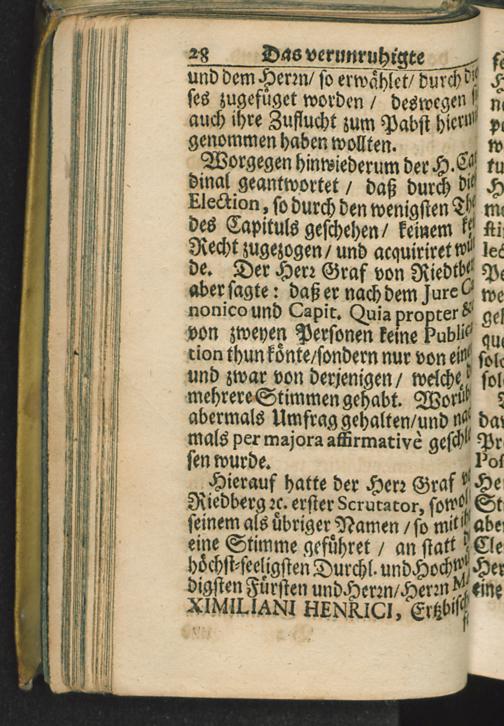 28 Das verunruhigte
und dem Herrn/ so erwählet/ durch
ses zugefüget worden / deswegen
auch ihre Zuflucht zum Pabst
genommen haben wollten.
Worgegen hinwiederum der H.
dinal geantwortet / daß durch
Election, so durch den wenigsten
des Capituls geschehen/ keinem
Recht zugezogen/ und acquiriret
de. Der Herr Graf von
aber sagte: daß er nach dem Jure
nonico und Capit. Quia propter &
von zweyen Personen keine
tion thun könte/sondern nur von
und zwar von derjenigen/ welche
mehrere Stimmen gehabt.
abermals Umfrag gehalten/und
mals per majora affirmativè
sen wurde.
Hierauf hatte der Herr Graf
Riedberg ꝛc. erster Scrutator,
seinem als übriger Namen/ so mit
eine Stimme geführet / an statt
höchst-seeligsten Durchl. und
digsten Fürsten und Herrn/Herrn
XIMILIANI HENRICI,